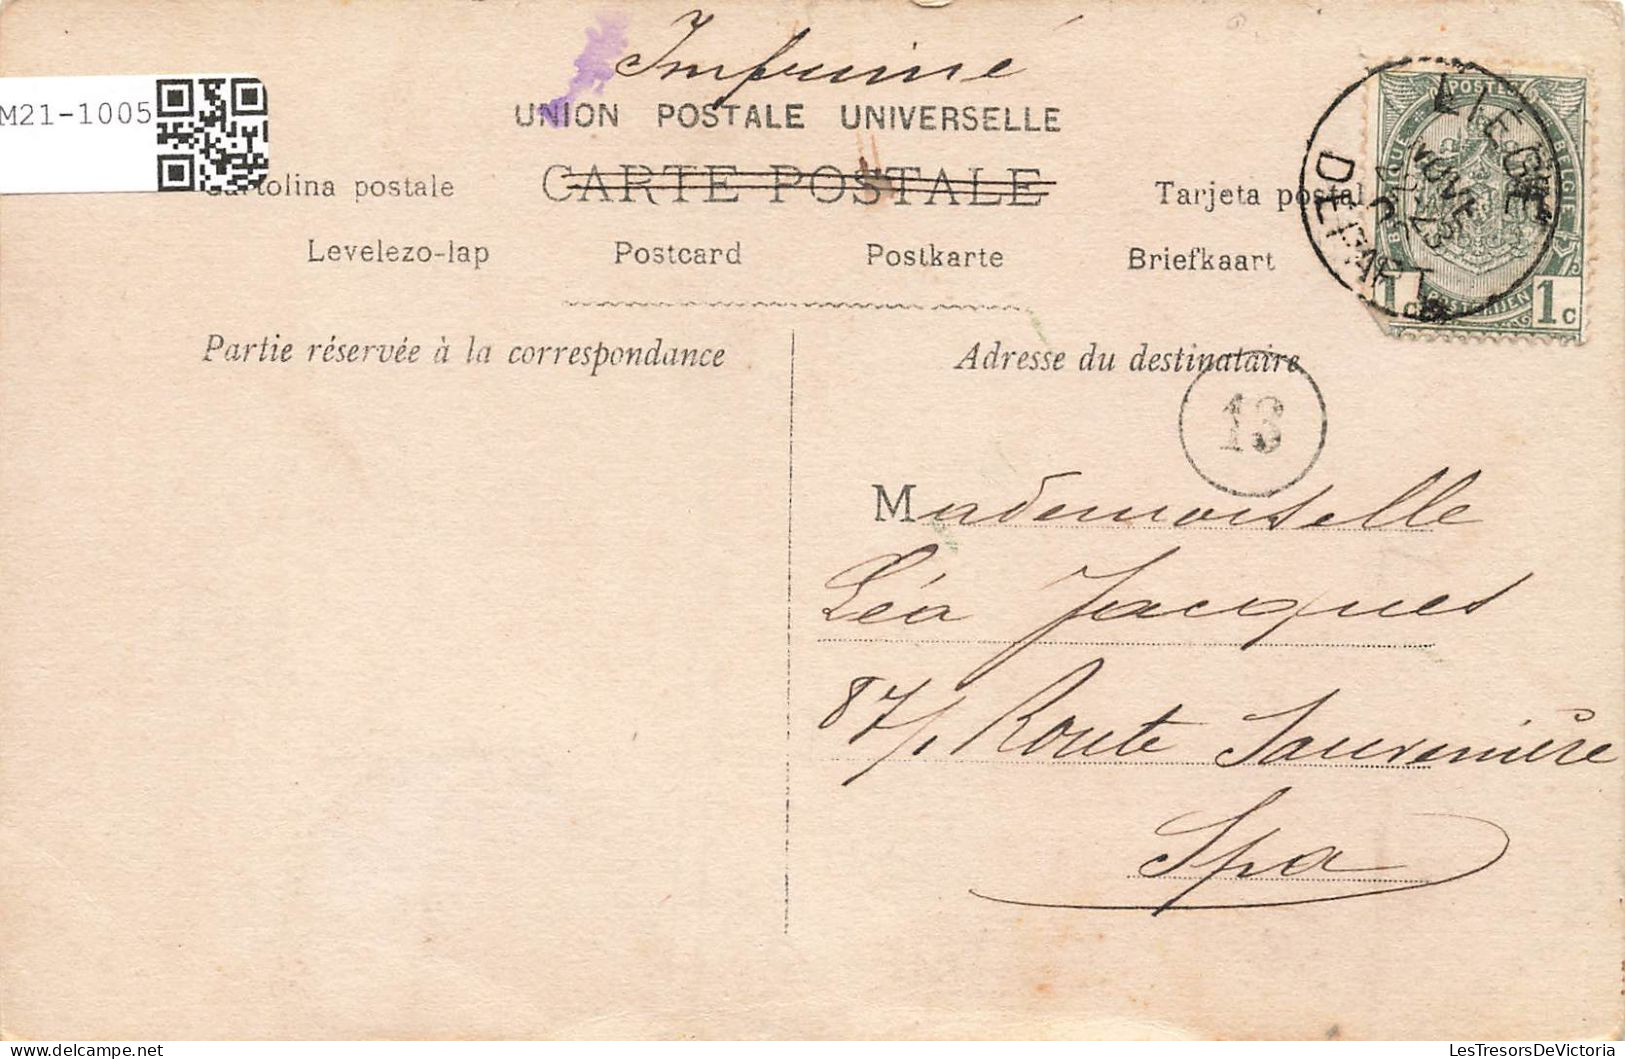 Imprimé
M21-1005
UNION POSTALE UNIVERSELLE
CARTE POSTALE
Cartolina postale
Tarjeta postal
Levelezo-lap Postcard Postkarte Briefkaart
LIEGE
DEPART
POSTES
BELGIQUE BELGIE
1 C 1 C
Partie réservée à la correspondance
Adresse du destinataire
13
Mademoiselle
Léa Jacques
87/, Route Sauvenière
Spa
LesTresorsDeVictoria